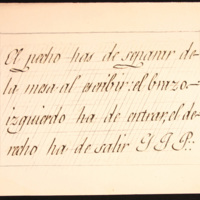 El pecho has de separar de-
la mesa al escribir: el brazo.-
izquierdo ha de entrar, el de-
recho ha de salir